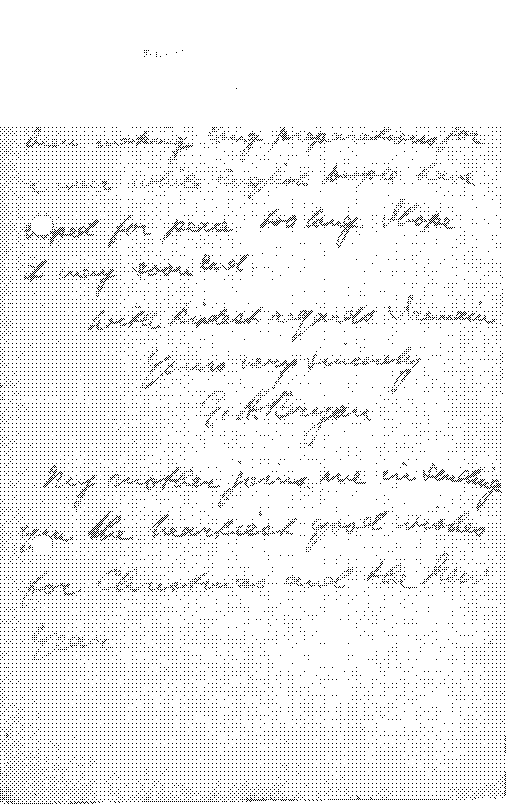 been making any preparations for
war while England
for peace too long. Hope
it may soon end
With kindest regards I remain
Yours very sincerely
Bryan
My mother joins me in sending
you the heartiest good wishes
for Christmas and the New
Year